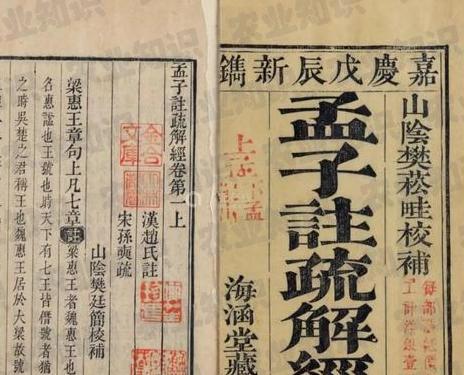 嘉慶戊辰新鐫
山陰樊菘畦校補
孟子註疏解經
海涵堂藏
孟子註疏解經卷第一上
漢趙氏註
宋孫奭疏
山陰樊廷簡校補
梁惠王章句上凡七章註梁惠王者魏惠王也
名惠謚也王號也時天下有七王皆僭號者猶
之時吳楚之君稱王也魏惠王居於大梁故號